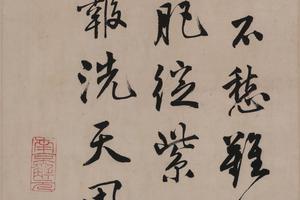 不愁難
肥從紫
報洗天恩